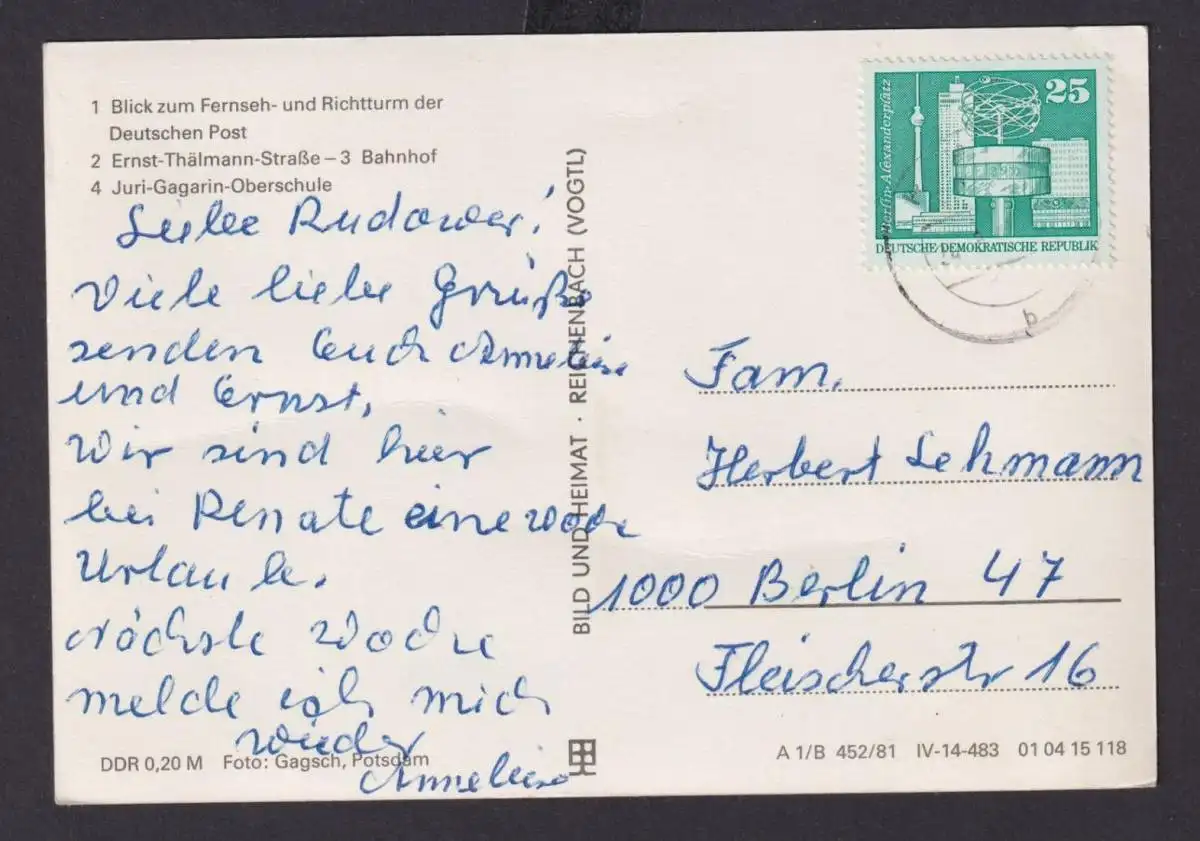 1 Blick zum Fernseh- und Richtturm der
Deutschen Post
2 Ernst-Thälmann-Straße – 3 Bahnhof
4 Juri-Gagarin-Oberschule
Liebe Rudower!
Viele liebe Grüße
senden Euch Anneliese
und Ernst,
Wir sind hier
bei Renate eine Woche
Urlaub.
Nächste Woche
melde ich mich
wieder
Anneliese
DDR 0,20 M Foto: Gagsch, Potsdam
BILD UND HEIMAT · REICHENBACH (VOGTL)
Berlin-Alexanderplatz
25
DEUTSCHE DEMOKRATISCHE REPUBLIK
b
Fam.
Herbert Lehmann
1000 Berlin 47
Fleischerstr 16
A 1/B 452/81 IV-14-483 01 04 15 118